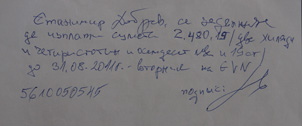 Станимир Добрев, се задължа
да изплати сумата 2,480,19 / две хиляди
и четиристотин и осемдесет лв и 19ст
до 31.08.2011г. - вторник на EVN
5610050545
подпис: